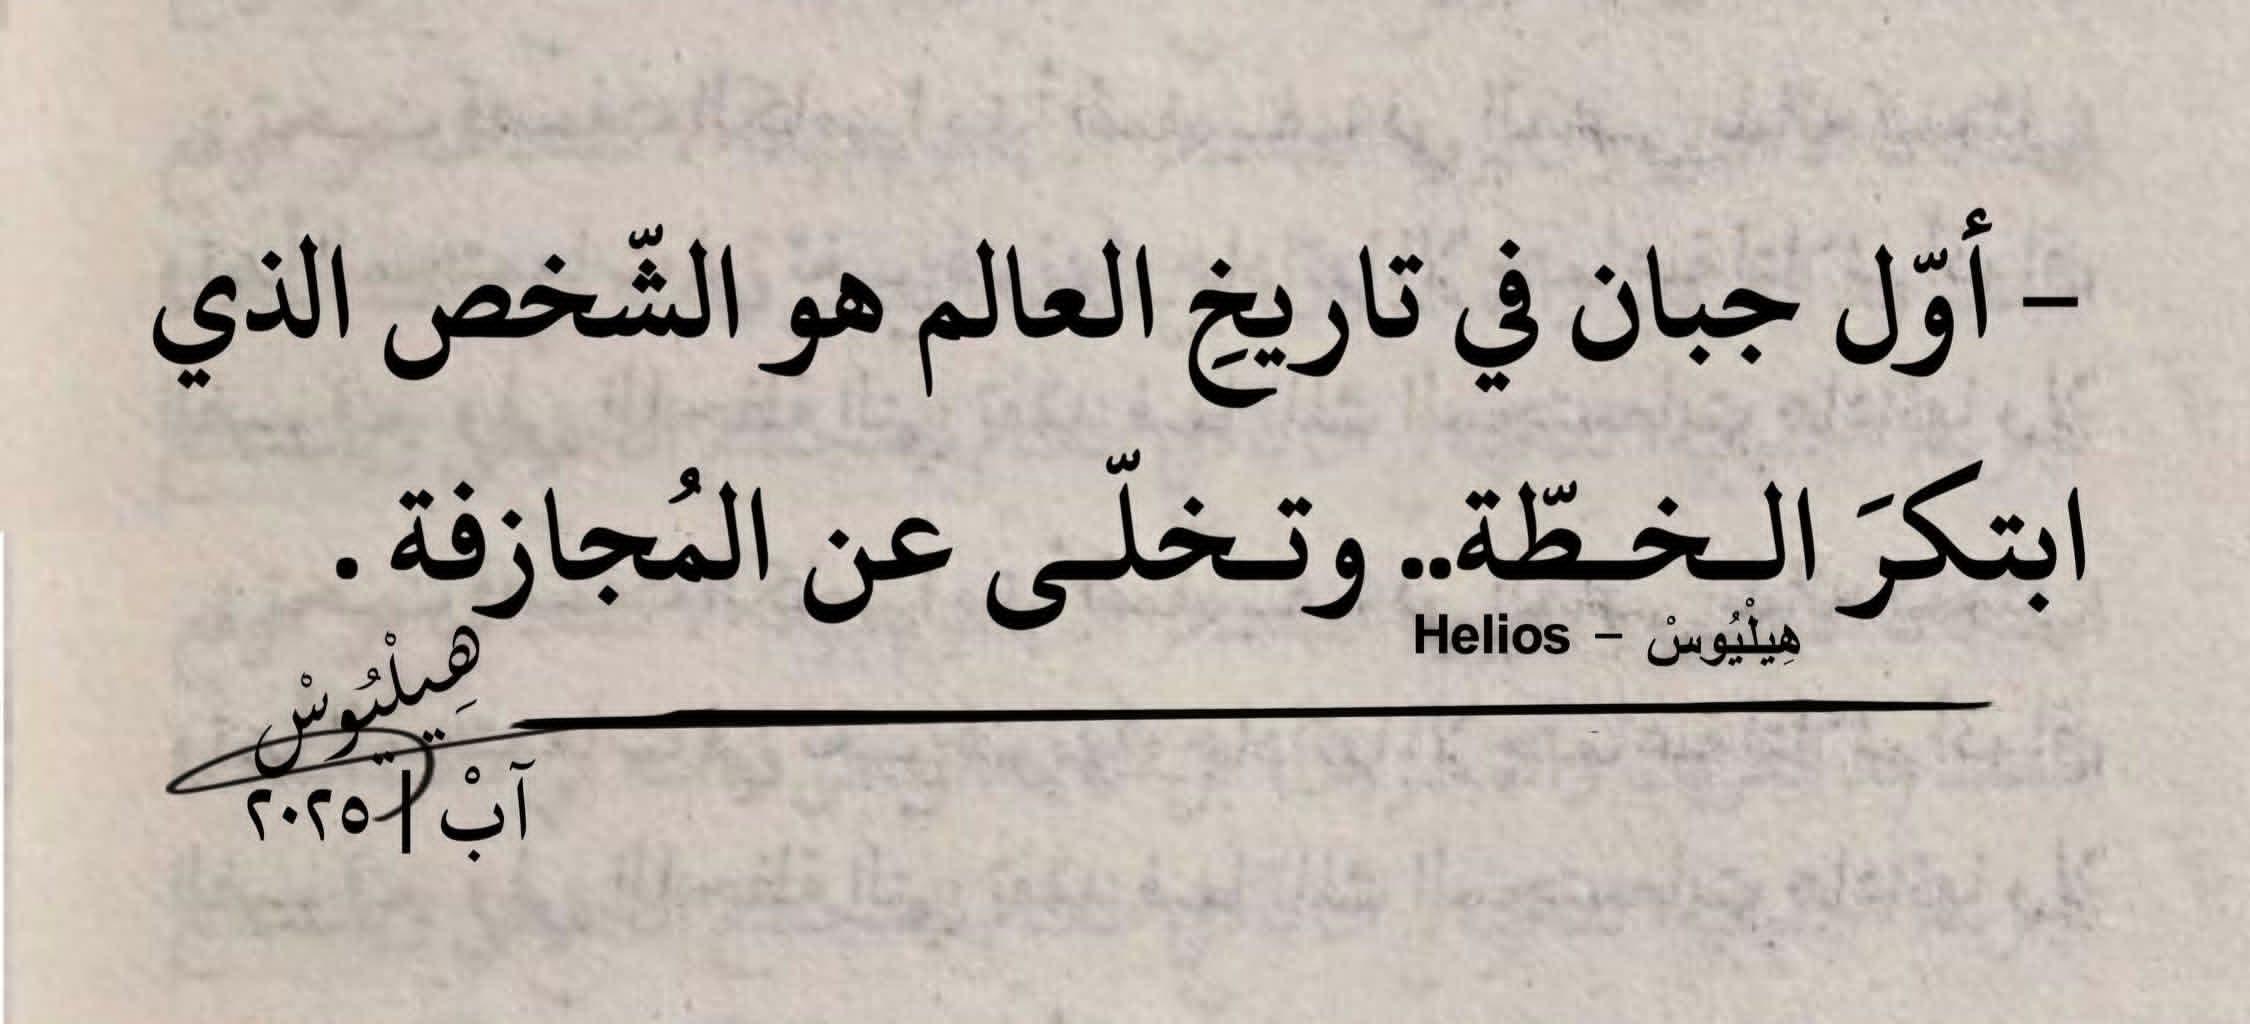 – أوّل جبان في تاريخِ العالم هو الشّخص الذي
ابتكرَ الـخـطّة.. وتـخلّـى عن المُجازفة .
هِيلْيُوسْ – Helios
هِيلْيُوسْ
آبْ | ٢٠٢٥